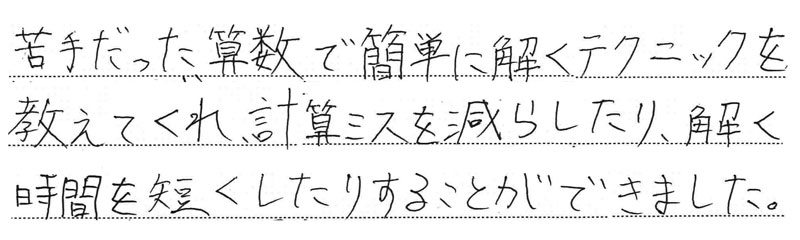 苦手だった算数で簡単に解くテクニックを
教えてくれ、計算ミスを減らしたり、解く
時間を短くしたりすることができました。